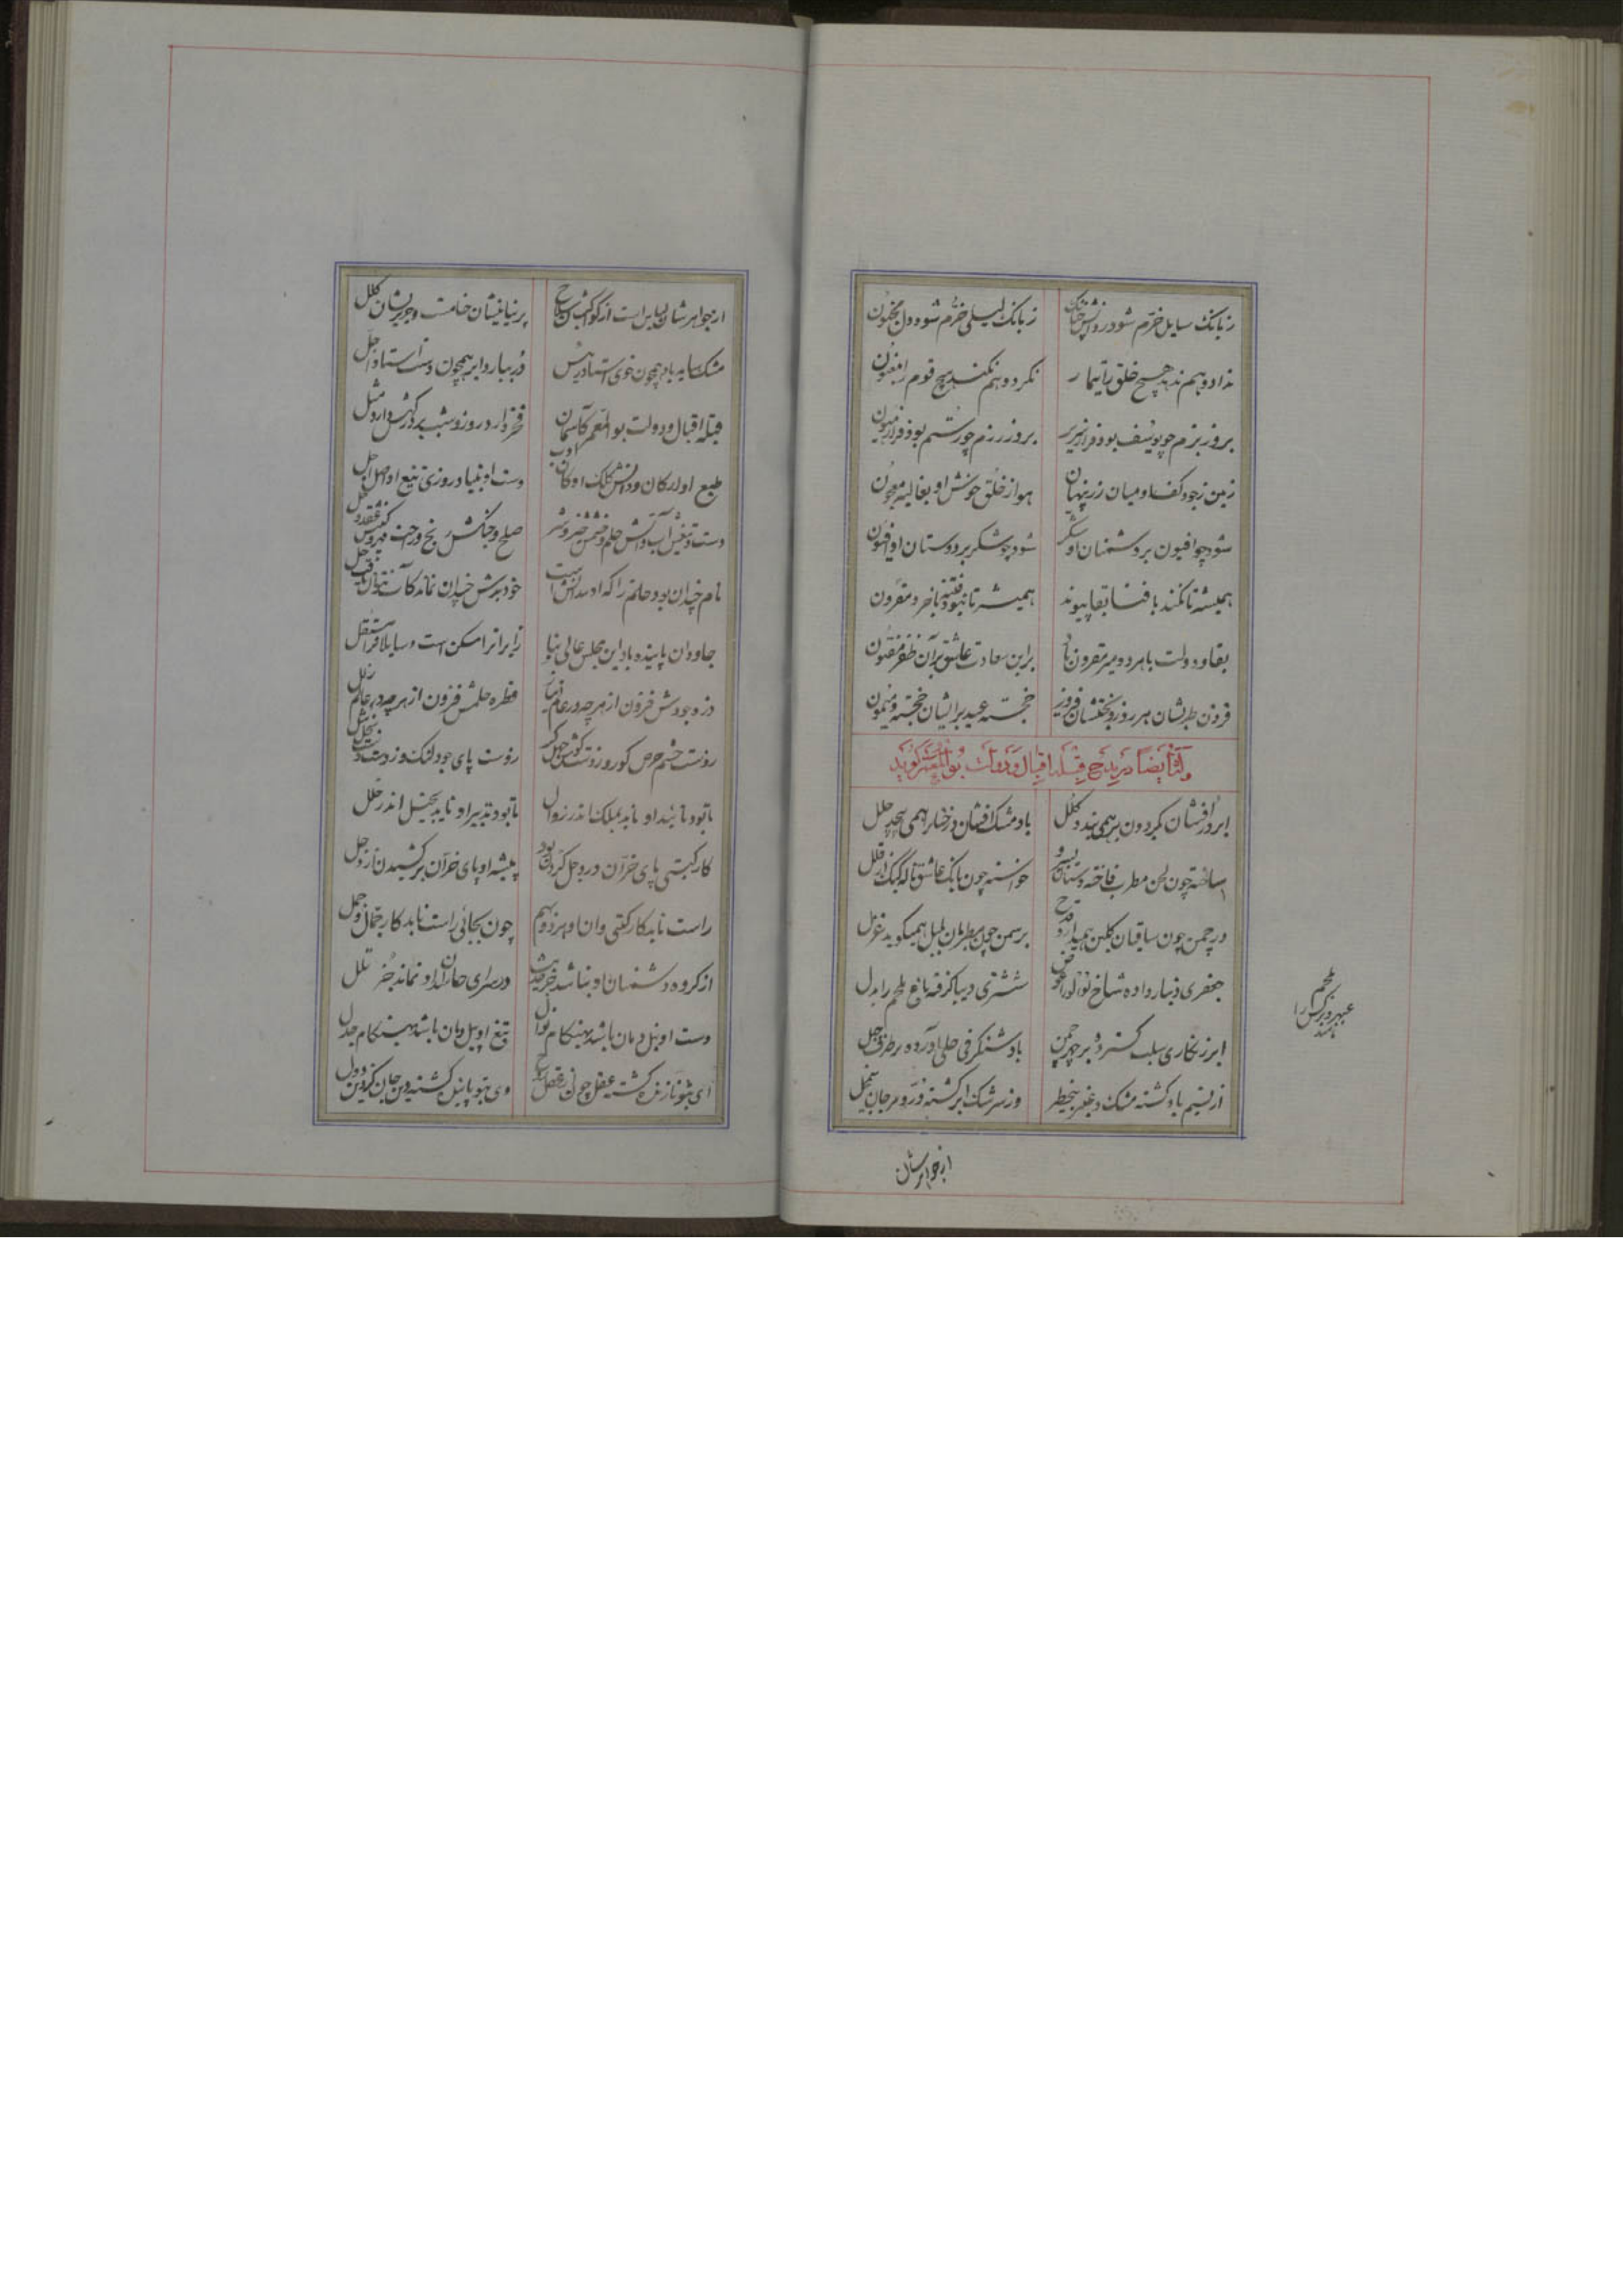 زبانک سایل خرم شود روانش چنانک
زبانک لیلی خرم شود دل مجنون
نداد و هم ندهد هیچ خلق را تیمار
نکرد و هم نکند هیچ قوم را مغبون
بروز بزم چو یوسف بود فراز سریر
بروز رزم چو رستم بود فراز هیون
زمین ز جود کف او میان زر پنهان
هوا ز خلق خوش او بغالیه معجون
شود چو افیون بر دشمنان او شکر
شود چو شکر بر دوستان او افیون
همیشه تا نکند با فنا بقا پیوند
همیشه تا نبود فتنه با خرد مقرون
بقا و دولت با هر دو میر مقرون باد
بر این سعادت عاشق بر آن ظفر مفتون
فزون طربشان هر روز و بختشان فیروز
خجسته عید بر ایشان خجسته و میمون
و له ایضاً در مدح قبله اقبال و دولت بوالمعمر گوید
ابر در افشان بگردون بر همی بندد کلل
باد مشک افشان ز رخسار همی سنجد حلل
ساخته چون لحن مطرب فاخته دستان بسرو
خواسته چون بانک عاشق ناله کبک از قلل
در چمن چون ساقیان گلبن همیدارد قدح
بر سمن چون مطربان بلبل همیگوید غزل
جعفری دینار داده شاخ نو
ششتری دیبا گرفته باغ ملحم را بدل
ابر زنگاری سلب گسترده بر چهر چمن
باد شنگرفی حلی آورده بر طرف جبل
از نسیم باد گشته مشک و عنبر
وز سرشک ابر گشته در و مرجان
ملحم
از جواهرشان
از جواهرشان
پرنیانیشان
مشک ساید باد همچون خوی استاد رئیس
در ببارد ابر همچون دست استاد اجل
قبله اقبال و دولت بوالمعمر کآسمان
فخر دارد روز و شب بر درگهش دارد مثل
طبع او ارکان و دانش کلک او کان ادب
دست او بنیاد روزی تیغ او اصل اجل
دست و تیغش آب و آتش حلم و خشمش خیر و شر
صلح و جنگش رنج و راحت
نام خندان بود حلم را که او
جاودان پاینده باد این مجلس عالی بنا
ذره جودش فزون از هر چه در عالم
قطره حلمش فزون از هر چه در عالم
روست چشم حرص کور و زوست گوش جهل کر
زوست پای جود لنگ و زوست دست بخل شل
تا بود تائید او ناید بملک اندر زوال
تا بود تدبیر او ناید بجیش اندر خلل
کار گیتی پای خر آن در وحل کردن بود
پیشه او پای خر آن بر کشیدن از وحل
راست ناید کار گیتی وان او هرزو بهم
چون بجائی راست ناید کار جمال و جمل
از گروه دشمنان او نباشد جز حدیث
در سرای حاسدان او نماند جز تلل
دست او نیل دمان باشد بهنگام نوال
تیغ او پیل دمان باشد بهنگام جدل
ای بتو نازنده گشته عقل چون
وی بتو پاینده گشته دین